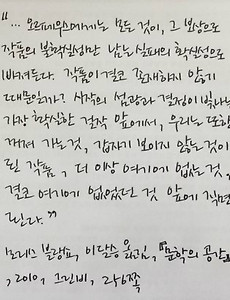 "... 오르페우스에게는 모든 것이, 그 보상으로
작품의 불확실성만 남는 실패의 확실성으로
빠져든다. 작품이 결코 존재하지 않기
때문일까? 시작의 섬광과 결정이 빛나는
가장 확실한 걸작 앞에서, 우리는 또한
꺼져 가는 것, 갑자기 보이지 않는 것이
된 작품, 더 이상 여기에 없는 것,
결코 여기에 없었던 것 앞에 직면
된다."
모리스 블랑쇼, 이달승 옮김, 『문학의 공간
, 2010, 그린비, 256쪽